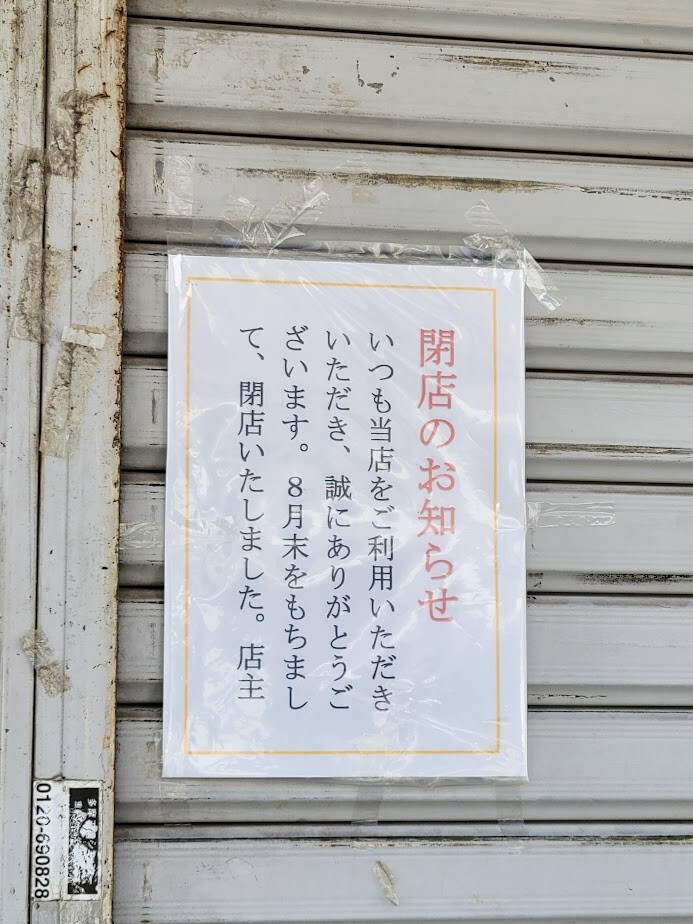 閉店のお知らせ
いつも当店をご利用いただき
いただき、誠にありがとうご
ざいます。８月末をもちまし
て、閉店いたしました。店主
0120-690828